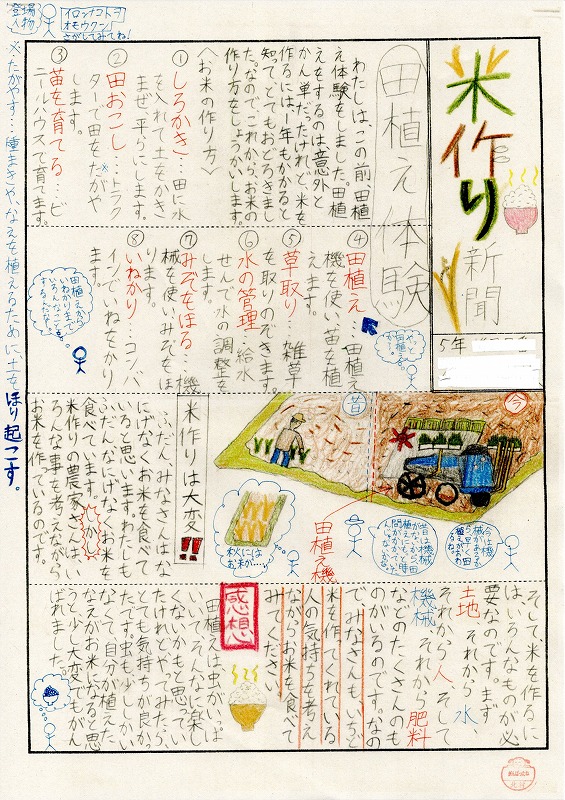 登場人物
イロンナコトヲオモウクン!
さがしてみてね!
米作り
新聞
5年
田植え体験
わたしは、この前、田植
え体験をしました。田植
えをするのは、意外と
かん単だったけれど、米を
作るには一年もかかると
知って、とてもおどろきまし
た。なので、これから、お米の
作り方をしょうかいします。
〈お米の作り方〉
①しろかき…田に水
を入れて土をかき
まぜ平らにします。
②田おこし…トラク
ターで田をたがや
します。
③苗を育てる…ビ
ニールハウスで育てます。
④田植え…田植え
機を使い、苗を植
えます。
⑤草取り…雑草
を取りのぞきます。
⑥水の管理…給水
せんで水の調整を
します。
⑦みぞをほる…機
械を使い、みぞをほ
ります。
⑧いねかり…コンバ
インでいねをかり
ます。
やっと田植えか〜。
田植えからいねかりまでいろんなことをするんだな〜。
今
昔
田植え機
今は機械があるから早く田植えがおわるね。
昔は機械がなかったから田植えも時間がかかっていたんだよ。
秋にはお米か…。
米作りは大変!!
ふだん、みなさんはな
にげなくお米を食べて
いると思います。わたしも
ふだんなにげなくお米を
食べています。しかし、
米作りの農家さんは、い
ろんな事を考えながら
お米を作っているのです。
そして、米を作るに
は、いろんなものが必
要なのです。まず、
土地、それから、水、
それから、人、そして
機械、それから、肥料
などのたくさんのも
のがいるのです。なの
で、みなさんも、いちど
米を作ってくれている
人の気持ちを考え
ながらお米を食べて
みてください。
感想
田植えは虫がいっぱ
いいてそんなに楽し
くないかもと思ってい
たけれどやってみたら、
とても気持ちが良かっ
たです。虫も少ししかい
なくて、自分が植えた
なえがお米になると思
うと少し大変でもがん
ばれました。
※たがやす…種まきや、なえを植えるために土をほり起こす。